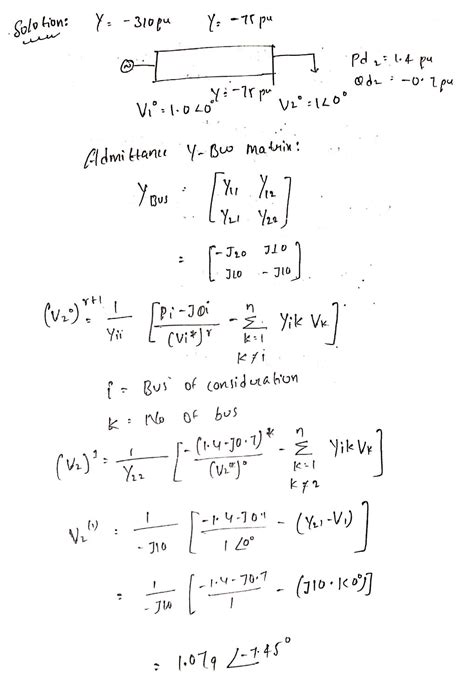 Solution: Y = -J10pu Y = -J5 pu
Pd2 = 1.4 pu
Qd2 = -0.7pu
Y = -J5 pu
V1° = 1.0∠0° V2° = 1∠0°
Admittance Y-Bus matrix:
Y BUS = [Y11 Y12
Y21 Y22]
= [-J20 J10
J10 -J10]
(V2°)^r+1 = 1/Yii [Pi-JQi/(Vi*)^r - Σ Yik Vk]
n
k=1
k≠i
i = Bus of consideration
k = No of bus
(V2)^1 = 1/Y22 [-(1.4-J0.7)*/(V2*)° - Σ Yik Vk]
n
k=1
k≠2
V2^(1) = 1/-J10 [-1.4-J0.7/1∠0° - (Y21-V1)]
= 1/-J10 [-1.4-J0.7/1 - (J10·1∠0°)]
= 1.079 ∠-7.45°